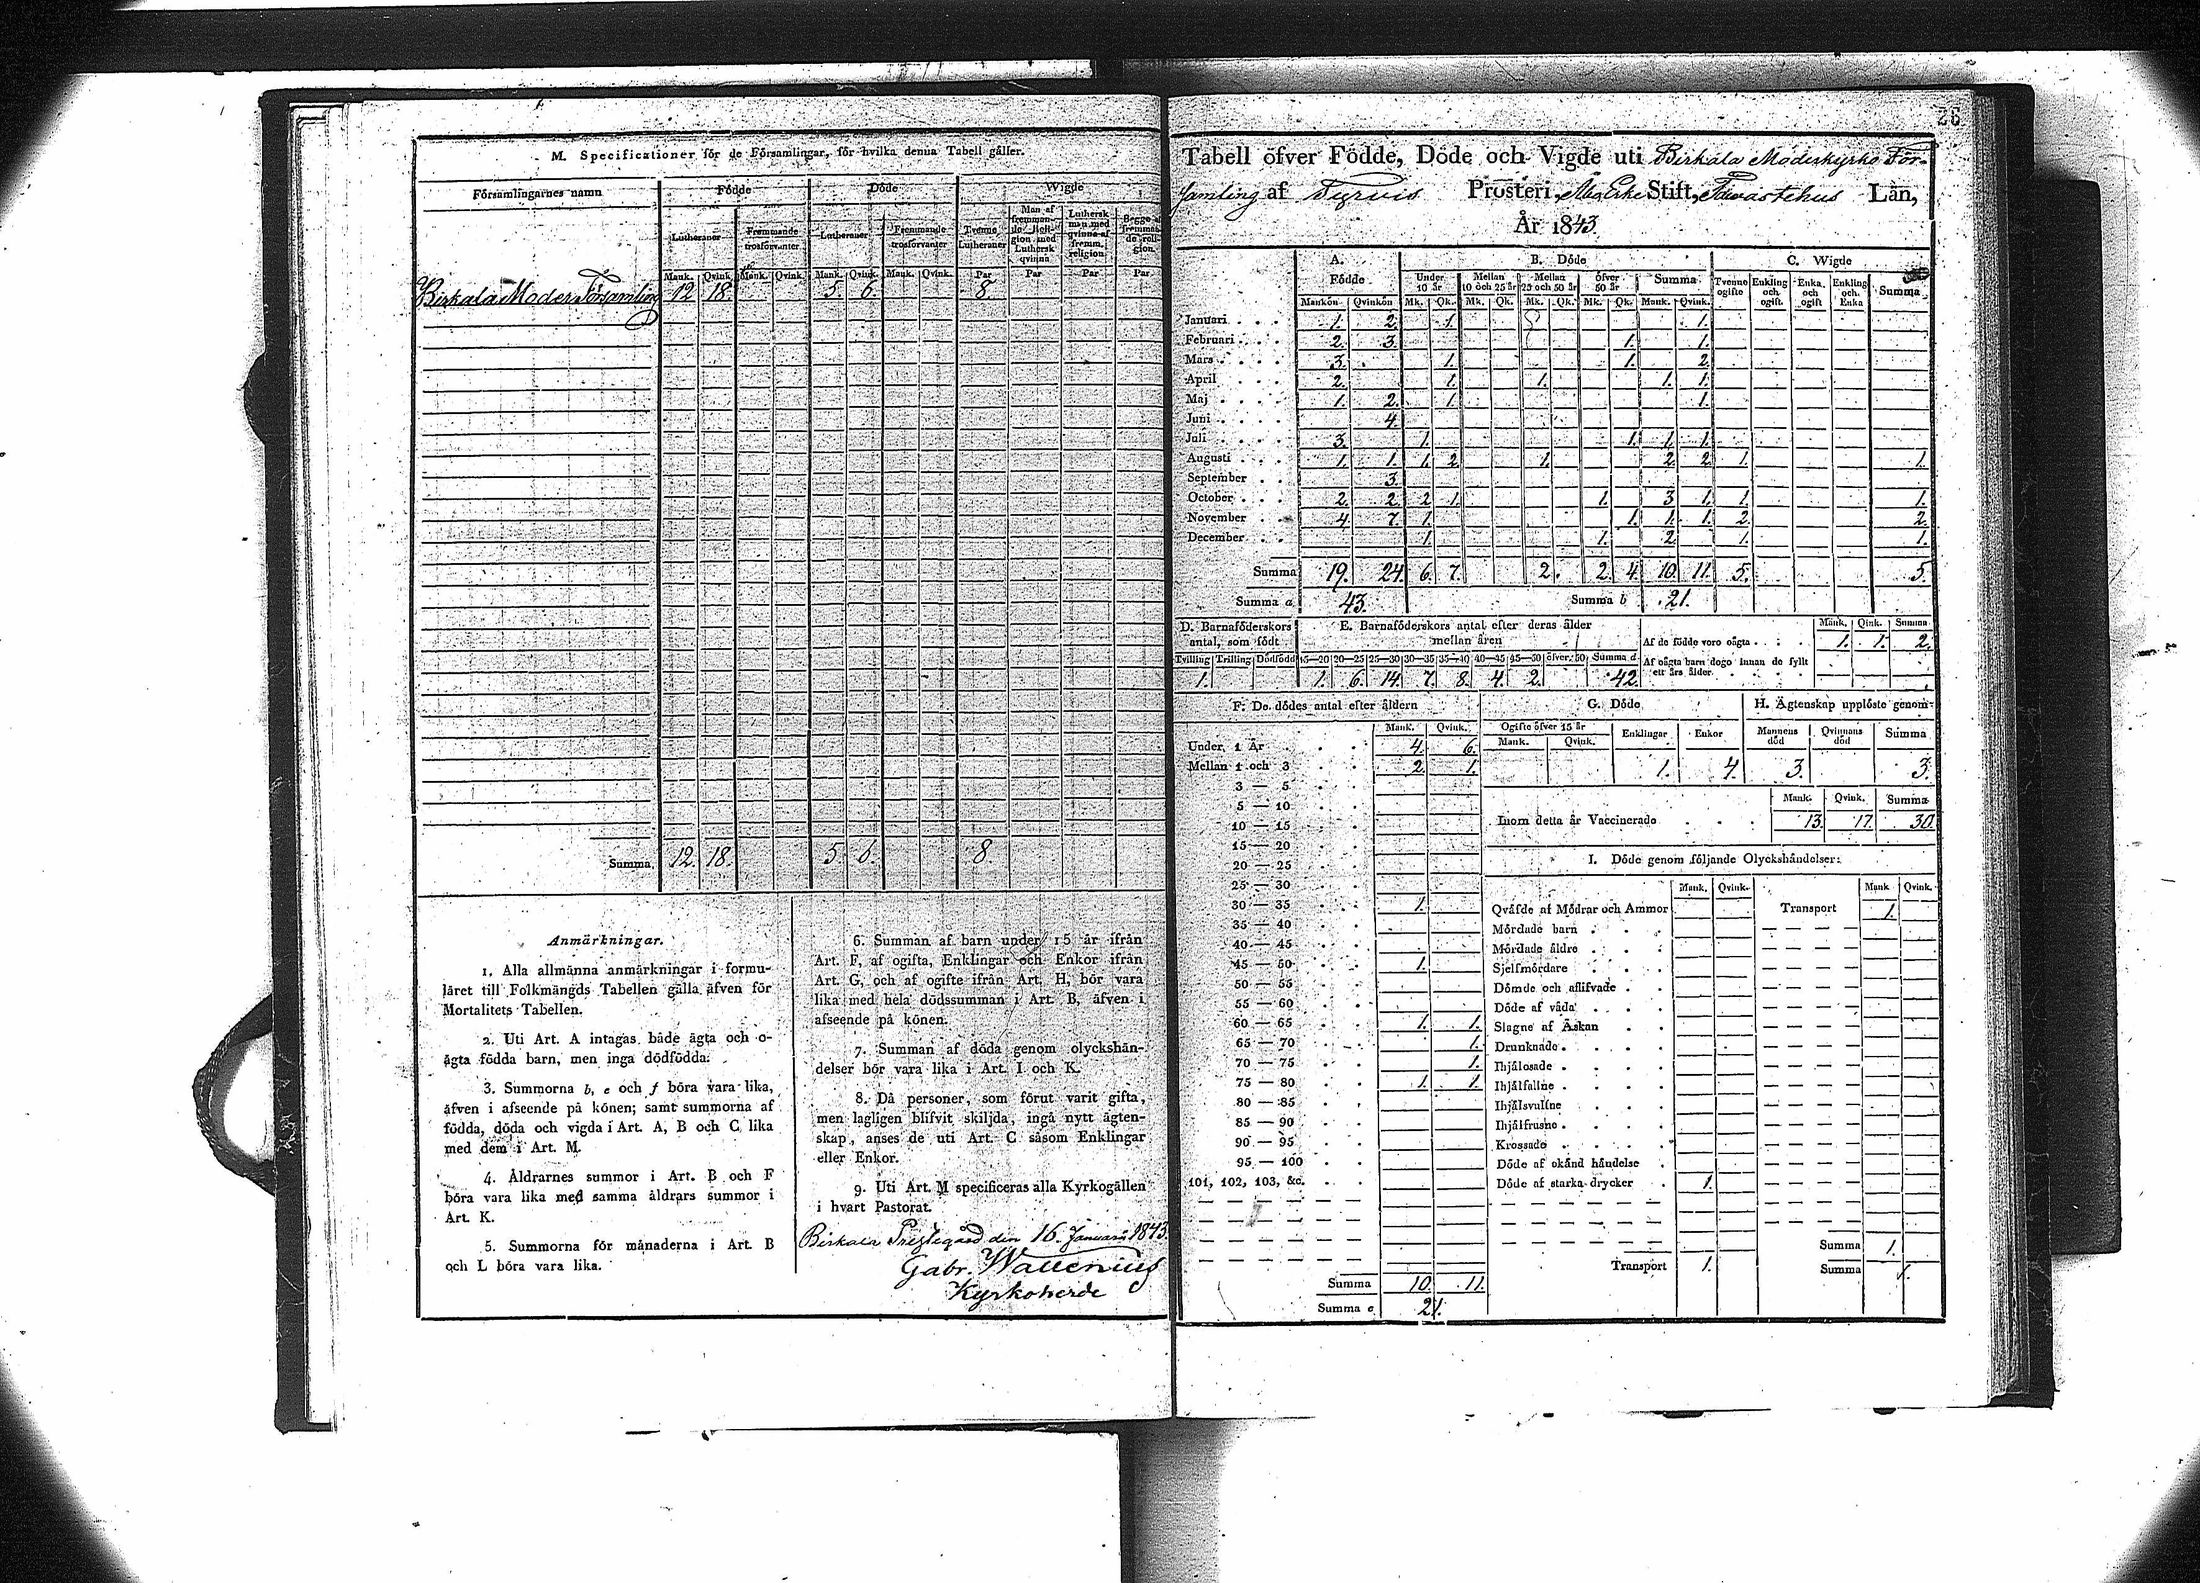 M. Specificationer för de Församlingar, för hvilka denna Tabell gäller.
Församlingarnes namn Födde Döde Wigde
Lutheraner Fremmande trosförvanter Lutheraner Fremmande trosförvanter Tvenne Lutheraner Man af fremman-de Reli-gion med Luthersk qvinna Luthersk man med qvinna af fremm. religion Begge af fremman-de reli-gion.
Mank. Qvink. Mank. Qvink. Mank. Qvink. Mank. Qvink. Par Par Par Par
Birkala Moder Församling 12 18. 5. 6. 8.
Summa 12. 18. 5 6. 8
Anmärkningar.
1. Alla allmänna anmärkningar i formu-
läret till Folkmängds Tabellen gälla äfven för
Mortalitets Tabellen.
2. Uti Art. A intagas både ägta och o-
ägta födda barn, men inga dödfödda.
3. Summorna b, e och f böra vara lika,
äfven i afseende på könen; samt summorna af
födda, döda och vigda i Art. A, B och C lika
med dem i Art. M.
4. Åldrarnes summor i Art. B och F
böra vara lika med samma åldrars summor i
Art. K.
5. Summorna för månaderna i Art. B
och L böra vara lika.
6. Summan af barn under 15 år ifrån
Art. F, af ogifta, Enklingar och Enkor ifrån
Art. G, och af ogifte ifrån Art. H, bör vara
lika med hela dödssumman i Art. B, äfven i
afseende på könen.
7. Summan af döda genom olyckshän-
delser bör vara lika i Art. I och K.
8. Då personer, som förut varit gifta,
men lagligen blifvit skiljda, ingå nytt ägten-
skap, anses de uti Art. C såsom Enklingar
eller Enkor.
9. Uti Art. M specificeras alla Kyrkogällen
i hvart Pastorat.
Birkala Prestegård den 16. Januarii 1843.
Gabr. Wallenius
Kyrkoherde
26
Tabell öfver Födde, Döde och Vigde uti Birkala Moderkyrko För-
samling af Tyrvis Prosteri, Åbo Erke Stift, Tavastehus Län,
År 1843.
A. B. Döde C. Wigde
Födde Under 10 år Mellan 10 och 25 år Mellan 25 och 50 år öfver 50 år Summa Tvenne ogifte Enkling och ogift Enka och ogift Enkling och Enka Summa
Mankön Qvinkön Mk. Qk. Mk. Qk. Mk. Qk. Mk. Qk. Mank. Qvink.
Januari 1. 2. 1. 1.
Februari 2. 3. 1. 1.
Mars 3. 1. 1. 2.
April 2. 1. 1. 1. 1.
Maj 1. 2. 1. 1.
Juni 4.
Juli 3. 1. 1. 1. 1.
Augusti 1. 1. 1. 2. 1. 2. 2. 1. 1.
September 3.
October 2. 2. 2. 1. 1. 3. 1. 1. 1.
November 4. 7. 1. 1. 1. 1. 2. 2.
December 1. 1. 2. 1. 1.
Summa 19. 24. 6. 7. 2. 2. 4. 10. 11. 5. 5.
Summa a 43. Summa b 21.
D. Barnaföderskors antal, som födt E. Barnaföderskors antal efter deras ålder mellan åren Mank. Qink. Summa
Af de födde voro oägta 1. 1. 2.
Tvilling Trilling Dödfödd 15—20 20—25 25—30 30—35 35—40 40—45 45—50 öfver 50 Summa d Af oägta barn dogo innan de fyllt
1. 1. 6. 14. 7. 8. 4. 2. 42. ett års ålder
F. De dödes antal efter åldern G. Döde H. Ägtenskap upplöste genom
Mank. Qvink. Ogifte öfver 15 år Enklingar Enkor Mannens död Qvinnans död Summa
Under 1 År 4. 6. Mank. Qvink.
Mellan 1 och 3 2. 1. 1. 4. 3. 3.
3 — 5
5 — 10 Mank. Qvink. Summa
10 — 15 Inom detta år Vaccinerade 13. 17. 30.
15 — 20
20 — 25 I. Döde genom följande Olyckshändelser:
25 — 30 Mank. Qvink. Mank. Qvink.
30 — 35 1. Qväfde af Mödrar och Ammor Transport 1.
35 — 40 Mördade barn
40 — 45 Mördade äldre
45 — 50 1. Sjelfmördare
50 — 55 Dömde och aflifvade
55 — 60 Döde af våda
60 — 65 1. 1. Slagne af Åskan
65 — 70 1. Drunknade
70 — 75 1. Ihjälosade
75 — 80 1. 1. Ihjälfallne
80 — 85 Ihjälsvultne
85 — 90 Ihjälfrusne
90 — 95 Krossade
95 — 100 Döde af okänd händelse
101, 102, 103, &c. Döde af starka drycker 1.
Summa 1.
Transport 1. Summa 1.
Summa 10. 11.
Summa e 21.